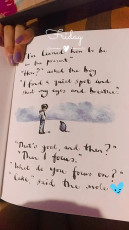 Friday
"I've learned how to be
in the present."
"How?" asked the boy.
"I find a quiet spot and
shut my eyes and breathe."
"That's good, and then?"
"Then I focus."
"What do you focus on?"
"Cake," said the mole.